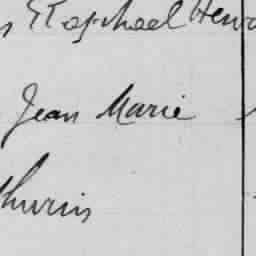 Raphael Henri
Jean Marie
thurin